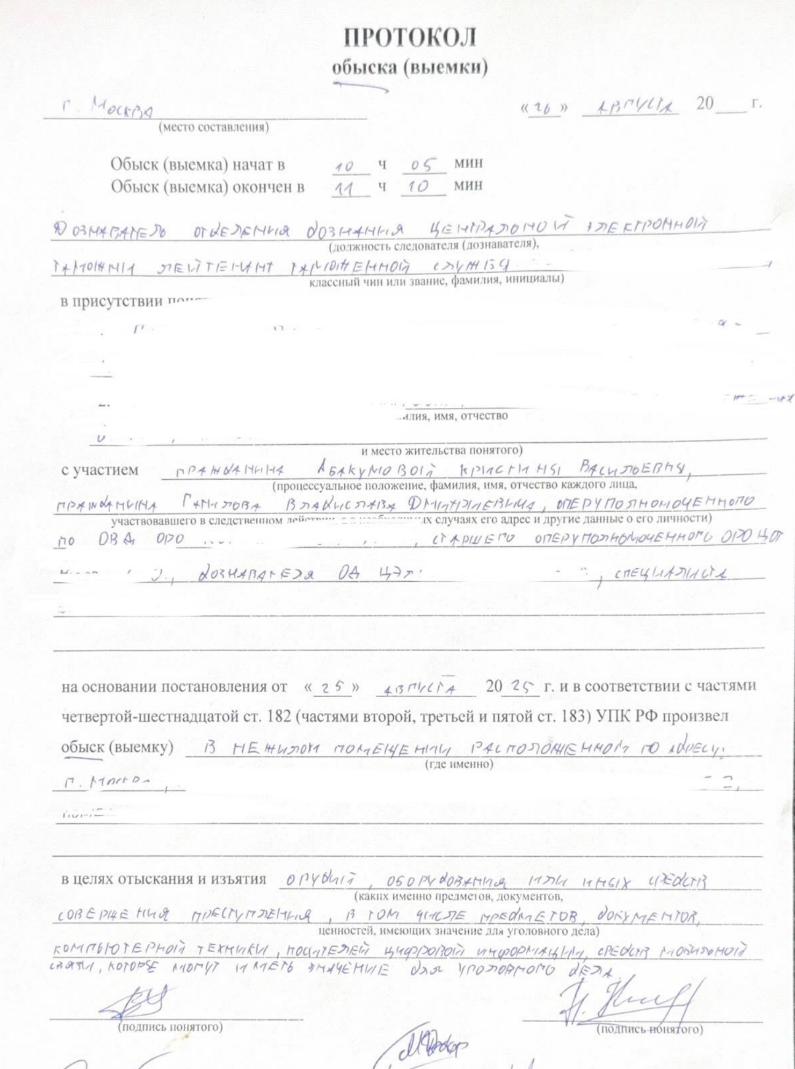 ПРОТОКОЛ
обыска (выемки)
г. Москва «26» августа 20 г.
(место составления)
Обыск (выемка) начат в 10 ч 05 мин
Обыск (выемка) окончен в 11 ч 10 мин
Дознаватель отделения дознания Центральной электронной
(должность следователя (дознавателя),
таможни лейтенант таможенной службы
классный чин или звание, фамилия, инициалы)
в присутствии
имя, отчество
и место жительства понятого)
с участием гражданина Абакумовой Кристины Васильевны,
(процессуальное положение, фамилия, имя, отчество каждого лица,
гражданина Владислава Дмитриевича, оперуполномоченного
участвовавшего в следственном случаях его адрес и другие данные о его личности)
по ОВД ОРО , старшего оперуполномоченного ОРО ЦОТ
, дознавателя ОД ЦЭТ , специалиста
на основании постановления от «25» августа 2025 г. и в соответствии с частями
четвертой-шестнадцатой ст. 182 (частями второй, третьей и пятой ст. 183) УПК РФ произвел
обыск (выемку) в нежилом помещении расположенном по адресу:
(где именно)
г.
в целях отыскания и изъятия орудий, оборудования или иных средств
(каких именно предметов, документов,
совершения преступления, в том числе предметов, документов,
ценностей, имеющих значение для уголовного дела)
компьютерной техники, носителей цифровой информации, средств мобильной
связи, которые могут иметь значение для уголовного дела
(подпись понятого) (подпись понятого)